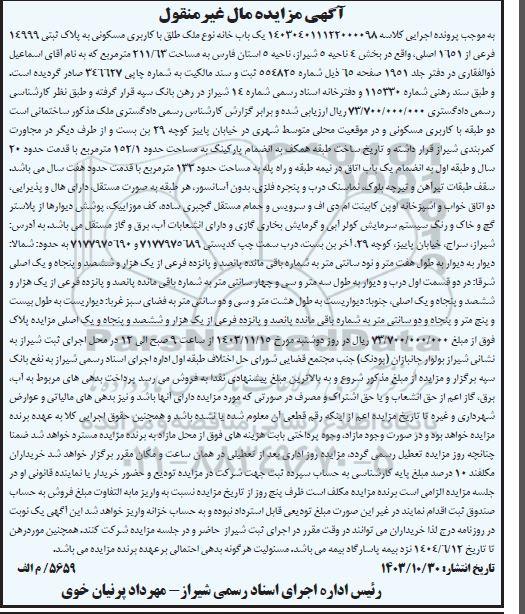 آگهی مزایده مال غیرمنقول
به موجب پرونده اجرایی کلاسه ۱۴۰۳۰۴۰۱۱۱۲۲۰۰۰۰۹۸ یک باب خانه نوع ملک طلق با کاربری مسکونی به پلاک ثبتی ۱۴۹۹۹
فرعی از ۱۶۵۱ اصلی، واقع در بخش ۴ ناحیه ۵ شیراز، ناحیه ۵ استان فارس به مساحت ۲۱۱/۶۳ مترمربع که به نام آقای اسماعیل
ذوالفقاری در دفتر جلد ۱۹۵۱ صفحه ۶۵ ذیل شماره ۵۵۴۸۲۵ ثبت و سند مالکیت به شماره چاپی ۳۴۶۶۲۷ صادر گردیده است.
و طبق سند رهنی شماره ۱۱۵۳۳۰ و دفترخانه اسناد رسمی شماره ۱۴ شیراز در رهن بانک سپه قرار گرفته و طبق نظر کارشناسی
رسمی دادگستری ۷۳/۷۰۰/۰۰۰/۰۰۰ ریال ارزیابی شده و برابر گزارش کارشناس رسمی دادگستری ملک مذکور ساختمانی است
دو طبقه با کاربری مسکونی و در موقعیت محلی متوسط شهری در خیابان پاییز کوچه ۲۹ بن بست و از طرف دیگر در مجاورت
کمربندی شیراز قرار داشته و تاریخ ساخت طبقه همکف به انضمام پارکینگ به مساحت حدود ۱۵۲/۱ مترمربع با قدمت حدود ۲۰
سال و طبقه اول به انضمام یک باب اتاق در نیمه طبقه و راه پله به مساحت حدود ۱۳۳ مترمربع با قدمت حدود هفت سال می باشد.
سقف طبقات تیرآهن و تیرچه بلوک، نماسنگ درب و پنجره فلزی، بدون آسانسور، هر طبقه به صورت مستقل، دارای هال و پذیرایی،
دو اتاق خواب و آشپزخانه اوپن کابینت ام دی اف و سرویس و حمام مستقل گچبری ساده، کف موزاییک، پوشش دیوارها از پلاستر
گچ و خاک و رنگ سیستم سرمایش کولر آبی و گرمایش بخاری گازی و دارای انشعابات آب، برق و گاز مستقل می باشد. به آدرس:
شیراز، سراج، خیابان پاییز، کوچه ۲۹، آخر بن بست، درب سمت چپ کدپستی ۷۱۷۷۹۷۵۶۸۹ و ۷۱۷۷۹۷۵۶۹۰ به حدود: شمالا:
دیوار به دیوار به طول هفت متر و نود سانتی متر به شماره باقی مانده پانصد و پانزده فرعی از یک هزار و ششصد و پنجاه و یک اصلی
شرقا: در دو قسمت اول درب و دیوار به طول سه متر و سی و چهار سانتی متر به شماره باقی مانده پانصد و پانزده فرعی از یک هزار و
ششصد و پنجاه و یک اصلی، جنوبا: دیواریست به طول هشت متر و سی و دو سانتی متر به فضای سبز غربا: دیواریست به طول بیست
و پنج متر و پنجاه و دو سانتی متر به شماره باقی مانده پانصد و پانزده فرعی از یک هزار و ششصد و پنجاه و یک اصلی مزایده پلاک
فوق از مبلغ ۷۳/۷۰۰/۰۰۰/۰۰۰ ریال در روز دوشنبه مورخ ۱۴۰۳/۱۱/۱۵ از ساعت ۹ صبح الی ۱۲ در محل اجرای ثبت شیراز به
نشانی شیراز بولوار جانبازان (پودنک) جنب مجتمع قضایی شورای حل اختلاف طبقه اول اداره اجرای اسناد رسمی شیراز به نفع بانک
سپه برگزار و مزایده از مبلغ مذکور شروع و به بالاترین مبلغ پیشنهادی نقدا به فروش می رسد پرداخت بدهی های مربوط به آب،
برق، گاز اعم از حق انشعاب و یا حق اشتراک و مصرف در صورتی که مورد مزایده دارای آنها باشد و نیز بدهی های مالیاتی و عوارض
شهرداری و غیره تا تاریخ مزایده اعم از اینکه رقم قطعی آن معلوم شده یا نشده باشد و همچنین حقوق اجرایی کلا به عهده برنده
مزایده خواهد بود و در صورت وجود مازاد، وجوه پرداختی بابت هزینه های فوق از محل مازاد به برنده مزایده مسترد خواهد شد ضمنا
چنانچه روز مزایده تعطیل رسمی گردد، مزایده روز اداری بعد از تعطیلی در همان ساعت و مکان مقرر برگزار خواهد شد خریداران
مکلفند ۱۰ درصد مبلغ پایه کارشناسی به حساب سپرده ثبت جهت شرکت در مزایده تودیع و حضور خریدار یا نماینده قانونی او در
جلسه مزایده الزامی است برنده مزایده مکلف است ظرف پنج روز از تاریخ مزایده نسبت به واریز مابه التفاوت مبلغ فروش به حساب
صندوق ثبت اقدام نمایند در غیر این صورت مبلغ تودیعی قابل استرداد نبوده و به حساب خزانه واریز خواهد شد این آگهی یک نوبت
در روزنامه درج لذا خریداران می توانند در وقت مقرر در اجرای ثبت شیراز حاضر و در جلسه مزایده شرکت کنند. همچنین موردرهن
تا تاریخ ۱۴۰۴/۶/۱۲ نزد بیمه پاسارگاد بیمه می باشد. مسئولیت هرگونه بدهی احتمالی برعهده برنده مزایده می باشد.
تاریخ انتشار: ۱۴۰۳/۱۰/۳۰
۵۶۵۹/ م الف
رئیس اداره اجرای اسناد رسمی شیراز – مهرداد پرنیان خوی